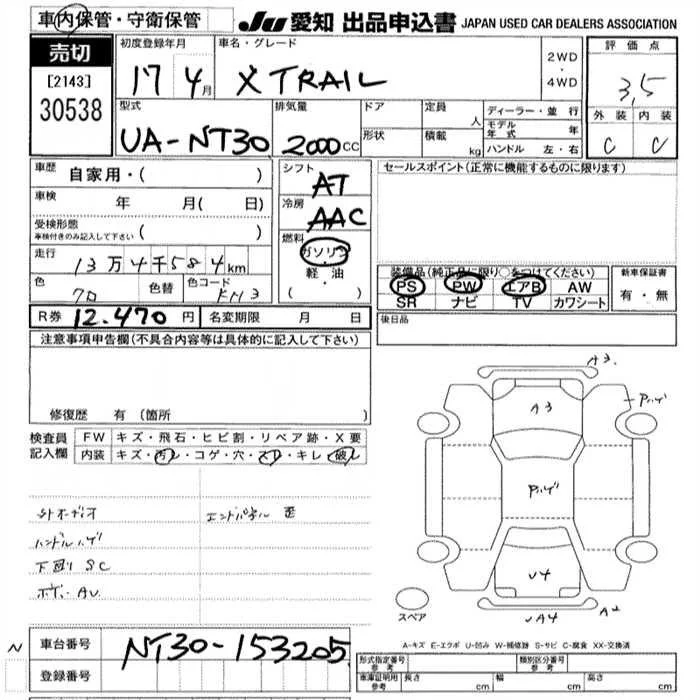 車内保管・守衛保管
JU 愛知 出品申込書 JAPAN USED CAR DEALERS ASSOCIATION
売切
[2143]
30538
初度登録年月
17 4月
車名・グレード
X TRAIL
2WD
・
4WD
評価点
3,5
外装 内装
C C
型式
UA-NT30
排気量
2000cc
ドア
形状
定員 人
積載 kg
ディーラー・並行
モデル年式 年
ハンドル 左・右
車歴 自家用・( )
車検 年 月( 日)
受検形態
車検付きのみ記入して下さい ( )
走行 13万4千584km
色 色替 色コード
KH3
シフト
AT
冷房
AAC
燃料
ガソリン
軽・油
( )
セールスポイント(正常に機能するものに限ります)
装備品(純正品に限り○をつけてください)
PS PW エアB AW
SR ナビ TV カワシート
新車保証書
有・無
R券 12.470円 名変期限 月 日
後日品
注意事項申告欄(不具合内容等は具体的に記入して下さい)
修復歴 有(箇所 )
検査員記入欄
FW キズ・飛石・ヒビ割・リペア跡・X要
内装 キズ・汚れ・コゲ・穴・スレ・キレ・破れ
外オーディオ
エンドパネル 歪
ハンドルハゲ
下回り SC
ボデーAU
A3
A3
Pハゲ
Pハゲ
U4
UA4
A2
スペア
A-キズ E-エクボ U-凹み W-補修跡 S-サビ C-腐食 XX-交換済
N
車台番号 NT30-153205
登録番号
形式指定番号 参考
類別区分番号 参考
車庫証明用 参考 長さ cm 幅 cm 高さ cm